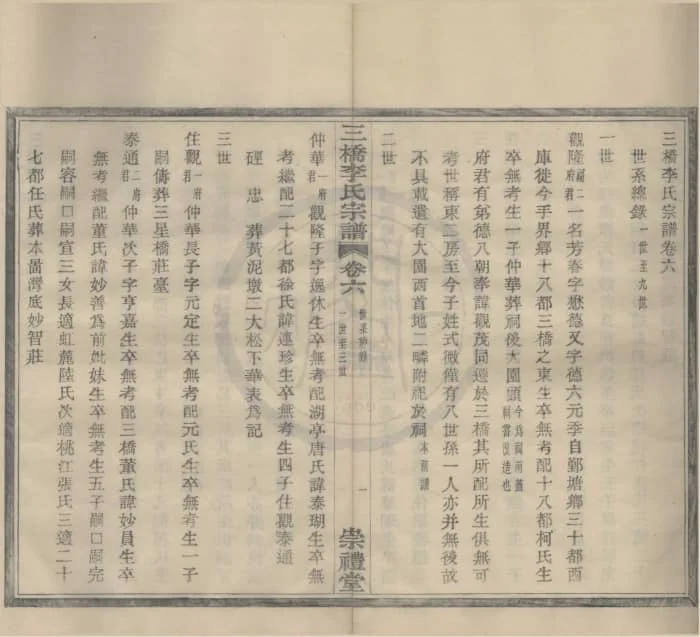 三橋李氏宗譜卷六
世系總錄 一世至九世
一世
觀隆 福二府君 一名芳春字懋德又字德六元季自鄞塘鄉三十都西
庫徙今手界鄉十八都三橋之東生卒無考配十八都柯氏生
卒無考生一子仲華葬祠後大園頭 今爲祠南蓋祠嘗改造也
府君有弟德八朝奉諱觀茂同遷於三橋其所配所生俱無可
考世稱東二房至今子姓式微僅有八世孫一人亦并無後故
不具載遺有大園西首地二疄附祀於祠 本前譜
二世
三橋李氏宗譜 卷六 一世至三世 一 崇禮堂
仲華 一府君 觀隆子字遜休生卒無考配湖亭唐氏諱泰瑚生卒無
考繼配二十七都徐氏諱連珍生卒無考生四子住觀泰通
忠 葬黃泥墩二大松下華表爲記
三世
住觀 一府君 仲華長子字元定生卒無考配元氏生卒無考生一子
嗣儔葬三星橋莊臺
泰通 二府君 仲華次子字亨嘉生卒無考配三橋董氏諱妙員生卒
無考繼配董氏諱妙善爲前妣妹生卒無考生五子嗣口嗣完
嗣容嗣口嗣宣三女長適虹麓陸氏次適桃江張氏三適二十
七都任氏葬本嵒灣底妙智莊